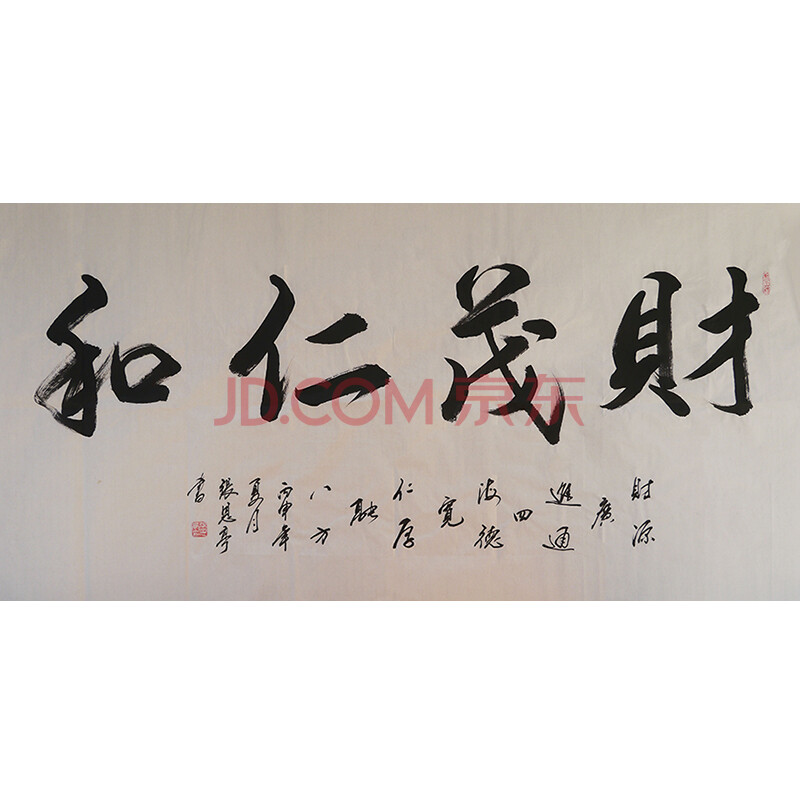 財茂仁和
財源
廣
進通
四
海德
寬
仁厚
融
八方
丙申年
夏月
張恩亭
書
JD.COM 京东